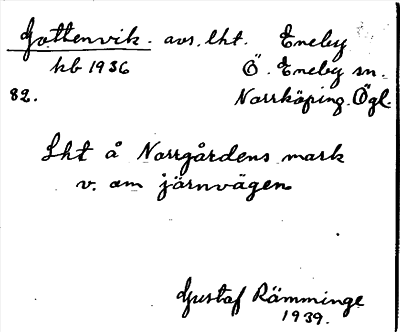 Gottenvik. avs. lht. Eneby
kb 1936 Ö. Eneby sn.
82. Norrköping. Ögl.
Lht å Norrgårdens mark
v. om järnvägen
Gustaf Rämminge
1939.